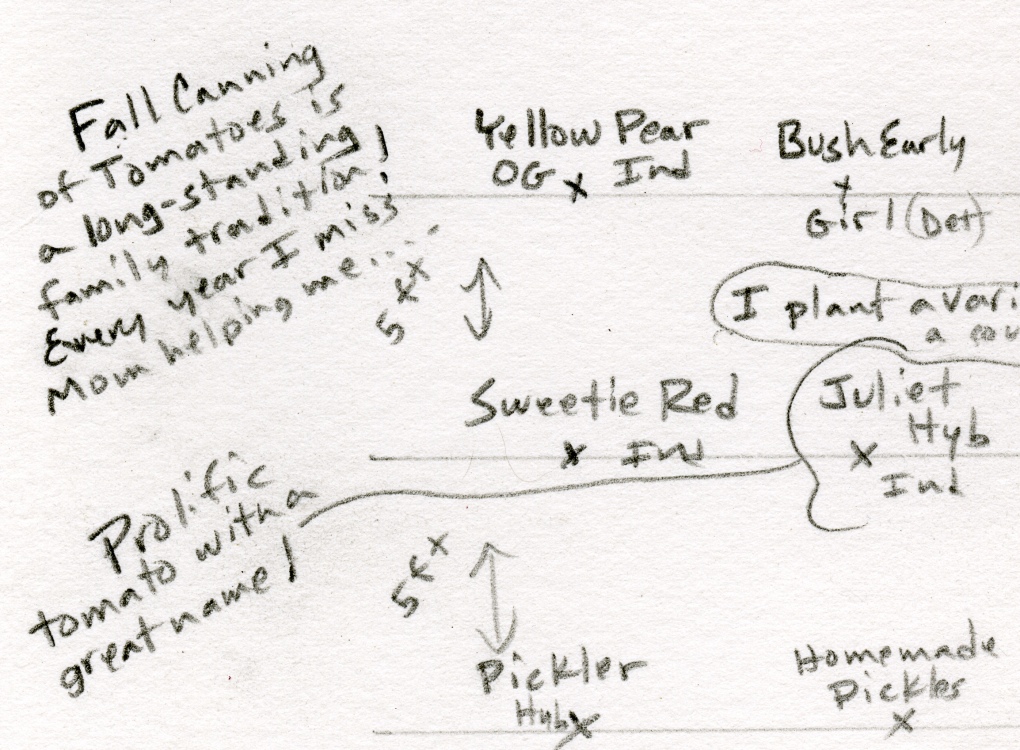 Fall Canning
of Tomatoes is
a long-standing
family tradition!
Every year I miss
Mom helping me...
Yellow Pear
OG x Ind
Bush Early
x
Girl (Det)
5 ft
I plant a vari
a cou
Sweetie Red
x Ind
Juliet
Hyb
x
Ind
Prolific
tomato with a
great name!
5 ft
Pickler
Hyb x
Homemade
Pickles
x